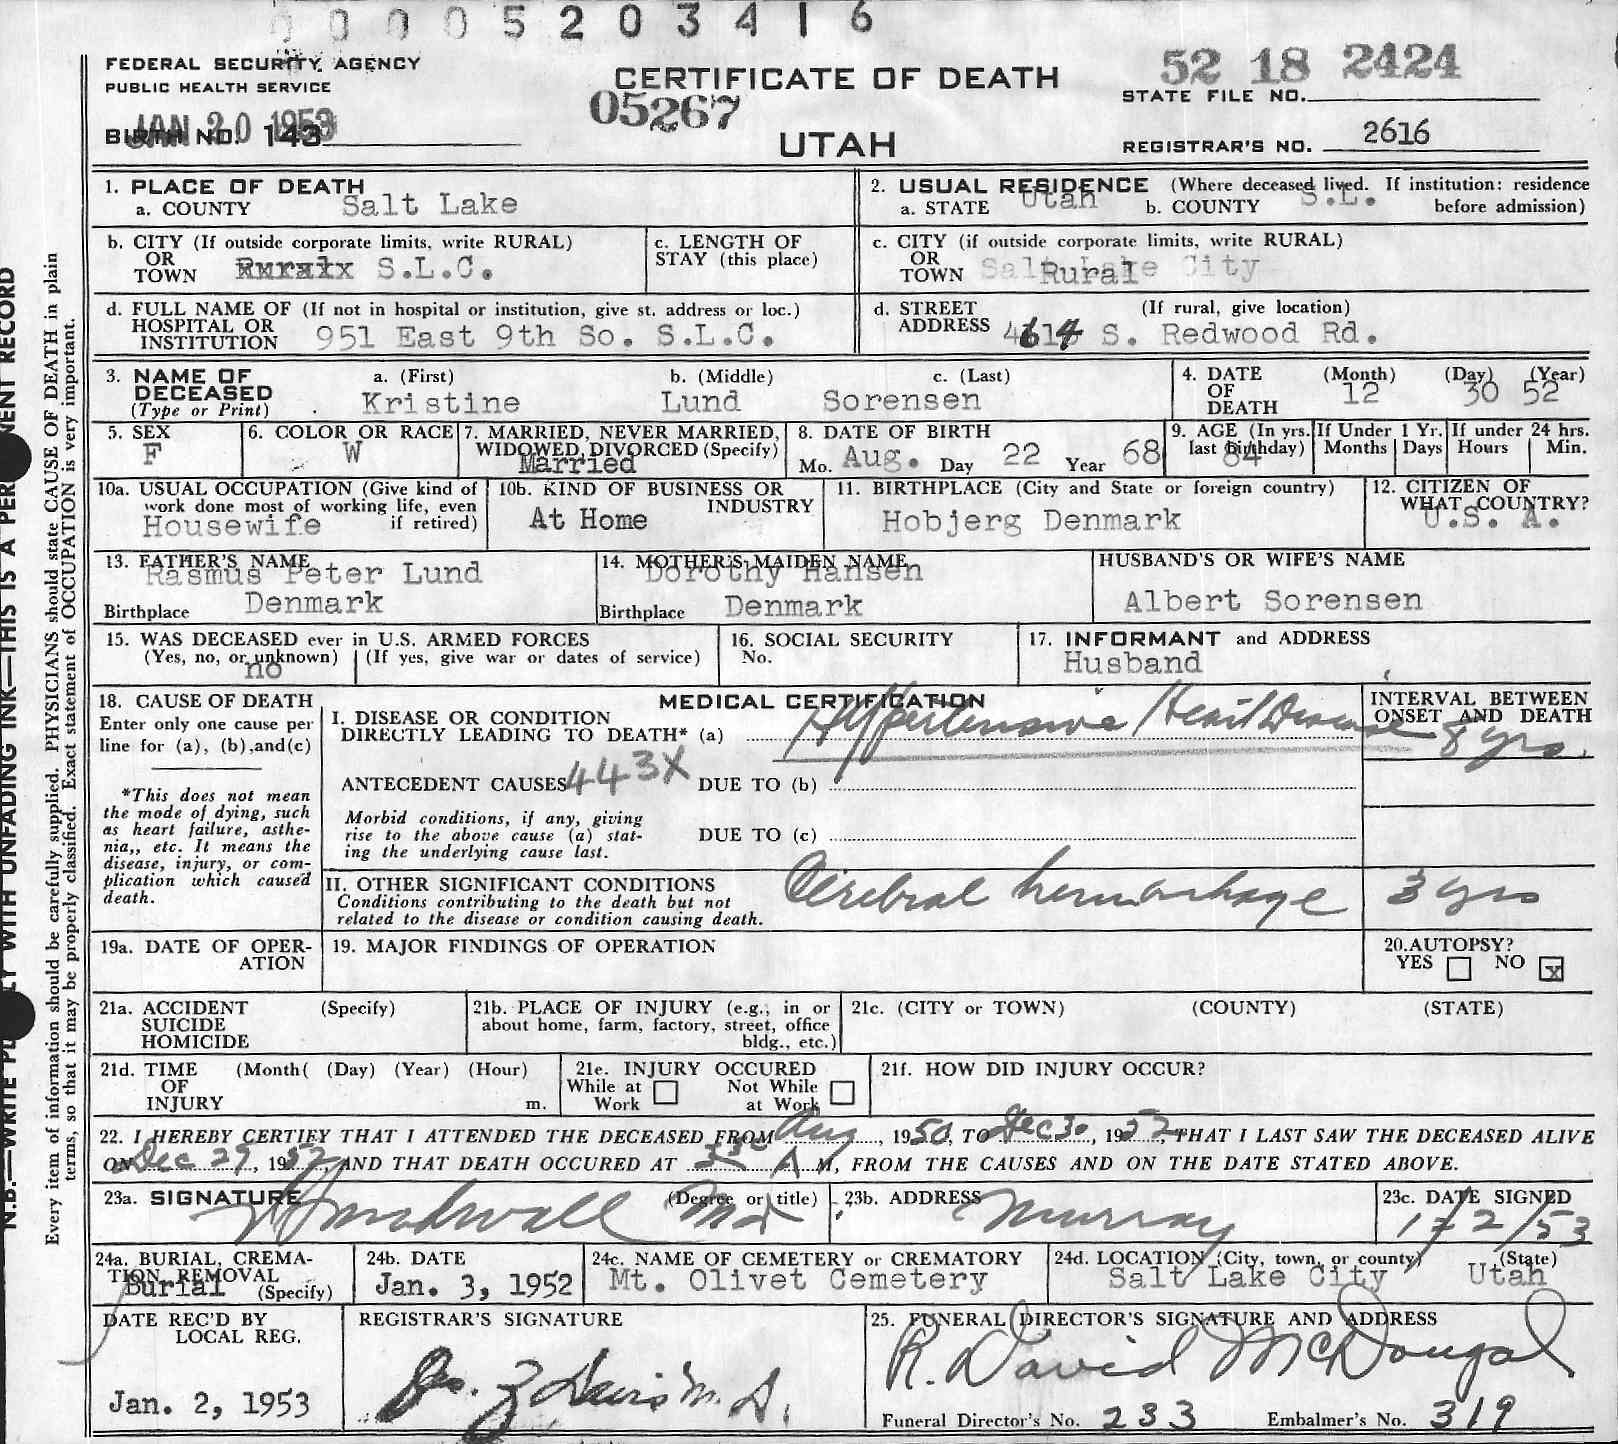 0 0 0 5 2 0 3 4 1 6
FEDERAL SECURITY AGENCY
PUBLIC HEALTH SERVICE
CERTIFICATE OF DEATH
52 18 2424
STATE FILE NO.
JAN 20 1953
BIRTH NO. 143
05267
UTAH
REGISTRAR'S NO. 2616
1. PLACE OF DEATH
a. COUNTY Salt Lake
2. USUAL RESIDENCE (Where deceased lived. If institution: residence before admission)
a. STATE Utah b. COUNTY S.L.
b. CITY (If outside corporate limits, write RURAL)
OR
TOWN Rural S.L.C.
c. LENGTH OF
STAY (this place)
c. CITY (if outside corporate limits, write RURAL)
OR
TOWN Salt Lake City Rural
d. FULL NAME OF (If not in hospital or institution, give st. address or loc.)
HOSPITAL OR
INSTITUTION 951 East 9th So. S.L.C.
d. STREET (If rural, give location)
ADDRESS 4614 S. Redwood Rd.
3. NAME OF DECEASED
(Type or Print)
a. (First) b. (Middle) c. (Last)
Kristine Lund Sorensen
4. DATE OF DEATH
(Month) (Day) (Year)
12 30 52
5. SEX
F
6. COLOR OR RACE
W
7. MARRIED, NEVER MARRIED,
WIDOWED, DIVORCED (Specify)
Married
8. DATE OF BIRTH
Mo. Aug. Day 22 Year 68
9. AGE (In yrs. last birthday)
84
If Under 1 Yr.
Months Days
If under 24 hrs.
Hours Min.
10a. USUAL OCCUPATION (Give kind of
work done most of working life, even
if retired)
Housewife
10b. KIND OF BUSINESS OR
INDUSTRY
At Home
11. BIRTHPLACE (City and State or foreign country)
Hobjerg Denmark
12. CITIZEN OF
WHAT COUNTRY?
U.S. A.
13. FATHER'S NAME
Rasmus Peter Lund
Birthplace Denmark
14. MOTHER'S MAIDEN NAME
Dorothy Hansen
Birthplace Denmark
HUSBAND'S OR WIFE'S NAME
Albert Sorensen
15. WAS DECEASED ever in U.S. ARMED FORCES
(Yes, no, or unknown) (If yes, give war or dates of service)
no
16. SOCIAL SECURITY
No.
17. INFORMANT and ADDRESS
Husband
18. CAUSE OF DEATH
Enter only one cause per
line for (a), (b),and(c)
*This does not mean
the mode of dying, such
as heart failure, asthe-
nia,, etc. It means the
disease, injury, or com-
plication which caused
death.
MEDICAL CERTIFICATION
I. DISEASE OR CONDITION
DIRECTLY LEADING TO DEATH* (a) Hypertensive Heart Disease
INTERVAL BETWEEN
ONSET AND DEATH
8 yrs.
ANTECEDENT CAUSES 443X DUE TO (b)
Morbid conditions, if any, giving
rise to the above cause (a) stat-
ing the underlying cause last.
DUE TO (c)
II. OTHER SIGNIFICANT CONDITIONS
Conditions contributing to the death but not
related to the disease or condition causing death.
Cerebral hemorrhage 3 yrs
19a. DATE OF OPER-
ATION
19. MAJOR FINDINGS OF OPERATION
20.AUTOPSY?
YES NO x
21a. ACCIDENT (Specify)
SUICIDE
HOMICIDE
21b. PLACE OF INJURY (e.g., in or
about home, farm, factory, street, office
bldg., etc.)
21c. (CITY or TOWN) (COUNTY) (STATE)
21d. TIME (Month( (Day) (Year) (Hour)
OF
INJURY m.
21e. INJURY OCCURED
While at Work Not While at Work
21f. HOW DID INJURY OCCUR?
22. I HEREBY CERTIFY THAT I ATTENDED THE DECEASED FROM Aug, 1950, TO Dec 30, 1952 THAT I LAST SAW THE DECEASED ALIVE
ON Dec 29, 1952, AND THAT DEATH OCCURED AT A M, FROM THE CAUSES AND ON THE DATE STATED ABOVE.
23a. SIGNATURE (Degree or title) MD
23b. ADDRESS Murray
23c. DATE SIGNED
1/2/53
24a. BURIAL, CREMA-
TION, REMOVAL
(Specify)
Burial
24b. DATE
Jan. 3, 1952
24c. NAME OF CEMETERY or CREMATORY
Mt. Olivet Cemetery
24d. LOCATION (City, town, or county) (State)
Salt Lake City Utah
DATE REC'D BY
LOCAL REG.
Jan. 2, 1953
REGISTRAR'S SIGNATURE
Davis M.D.
25. FUNERAL DIRECTOR'S SIGNATURE AND ADDRESS
R. David McDougal
Funeral Director's No. 233 Embalmer's No. 319
Every item of information should be carefully supplied. PHYSICIANS should state CAUSE OF DEATH in plain
terms, so that it may be properly classified. Exact statement of OCCUPATION is very important.
N.B.—WRITE WITH UNFADING INK—THIS IS A RECORD